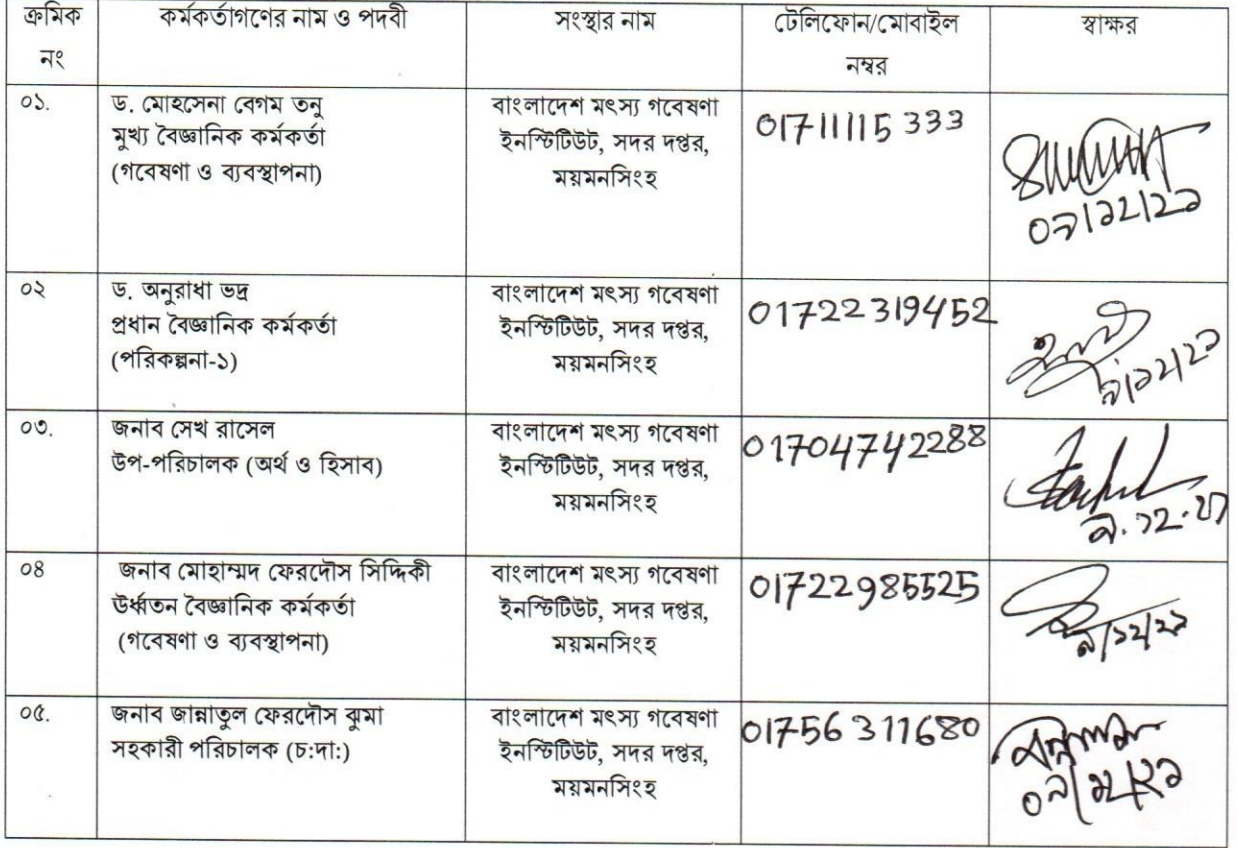 ক্রমিক নং
কর্মকর্তাগণের নাম ও পদবী
সংস্থার নাম
টেলিফোন/মোবাইল নম্বর
স্বাক্ষর
০১.
ড. মোহসেনা বেগম তনু
মুখ্য বৈজ্ঞানিক কর্মকর্তা
(গবেষণা ও ব্যবস্থাপনা)
বাংলাদেশ মৎস্য গবেষণা
ইনস্টিটিউট, সদর দপ্তর,
ময়মনসিংহ
01711115333
০৯/১২/২১
০২
ড. অনুরাধা ভদ্র
প্রধান বৈজ্ঞানিক কর্মকর্তা
(পরিকল্পনা-১)
বাংলাদেশ মৎস্য গবেষণা
ইনস্টিটিউট, সদর দপ্তর,
ময়মনসিংহ
01722319452
৯/১২/২১
০৩.
জনাব সেখ রাসেল
উপ-পরিচালক (অর্থ ও হিসাব)
বাংলাদেশ মৎস্য গবেষণা
ইনস্টিটিউট, সদর দপ্তর,
ময়মনসিংহ
01704742288
৯.১২.২১
০৪
জনাব মোহাম্মদ ফেরদৌস সিদ্দিকী
উর্ধ্বতন বৈজ্ঞানিক কর্মকর্তা
(গবেষণা ও ব্যবস্থাপনা)
বাংলাদেশ মৎস্য গবেষণা
ইনস্টিটিউট, সদর দপ্তর,
ময়মনসিংহ
01722985525
৯/১২/২১
০৫.
জনাব জান্নাতুল ফেরদৌস ঝুমা
সহকারী পরিচালক (চ:দা:)
বাংলাদেশ মৎস্য গবেষণা
ইনস্টিটিউট, সদর দপ্তর,
ময়মনসিংহ
01756311680
০৯/১২/২১